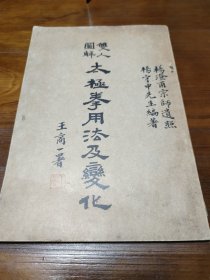 楊澄甫宗師遺照
楊守中先生編著
雙人
圖解
太極拳用法及變化
王商一署